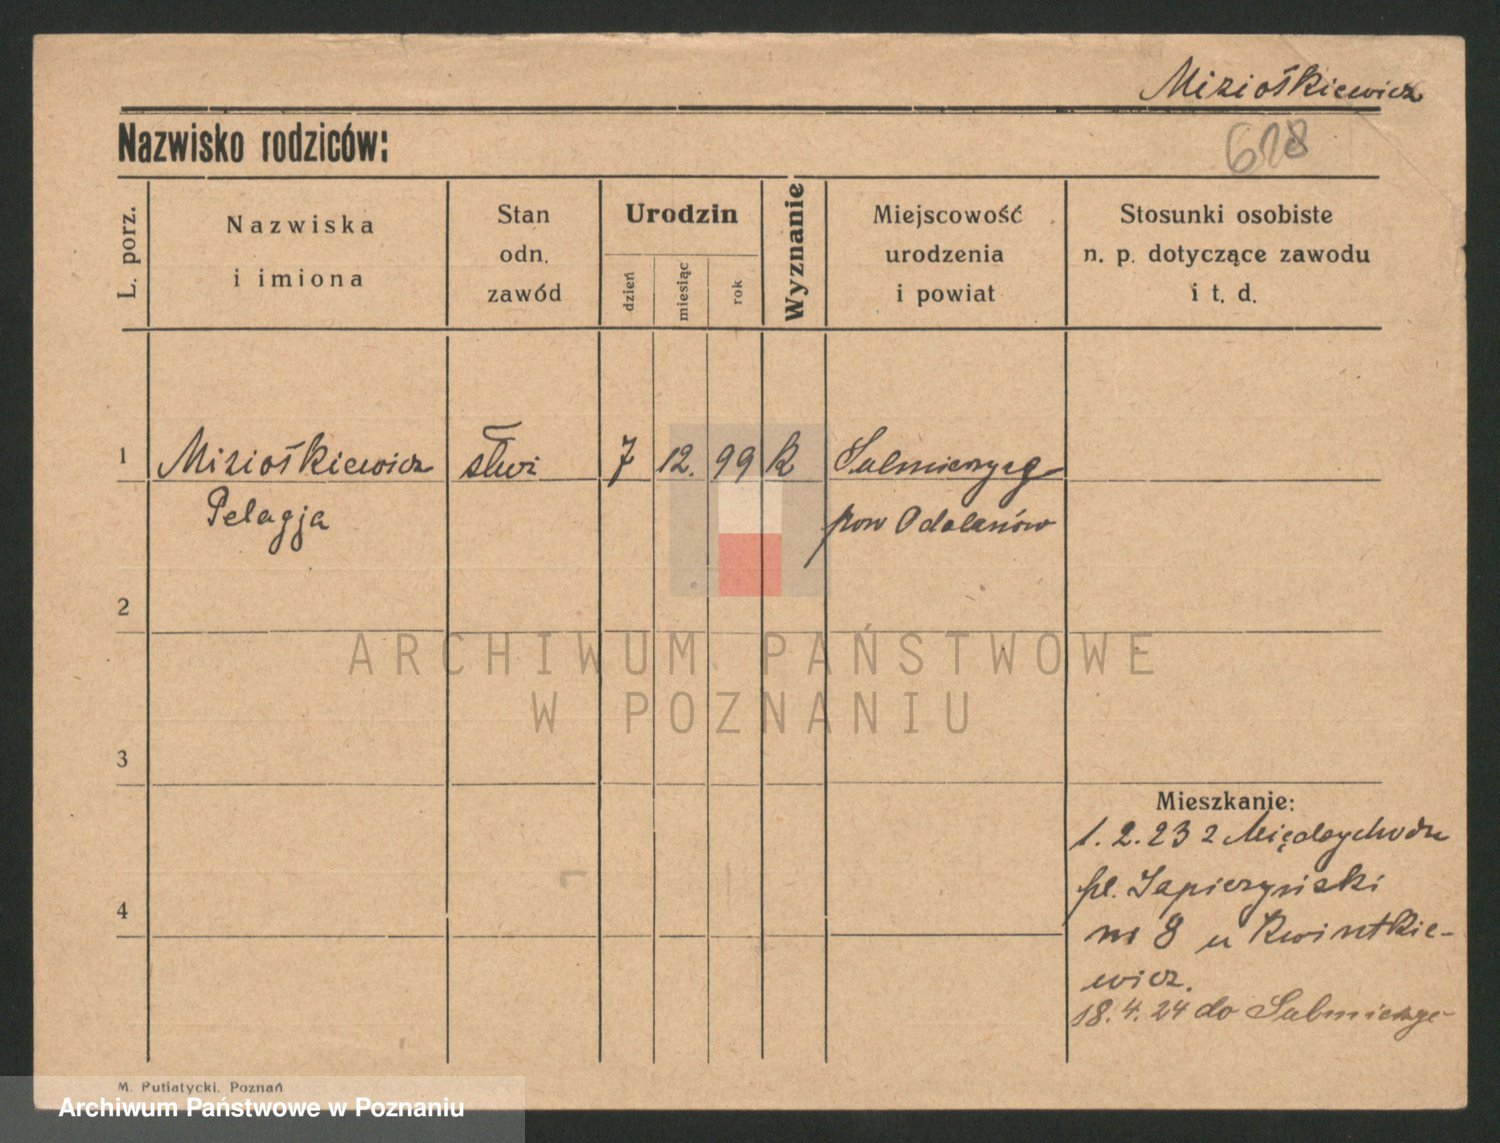 Miziośkiewicz
618
Nazwisko rodziców:
L. porz.
Nazwiska
i imiona
Stan
odn.
zawód
Urodzin
dzień
miesiąc
rok
Wyznanie
Miejscowość
urodzenia
i powiat
Stosunki osobiste
n. p. dotyczące zawodu
i t. d.
1 Miziośkiewicz służ 7 12. 99 k Sulmierzyce
Pelagja pow Odolanów
2
ARCHIWUM PAŃSTWOWE
W POZNANIU
3
Mieszkanie:
1.2.23 z Międzychodu
pl. Sapierzyński
nr 8 u Kwintkie-
wicz.
4
18.4.24 do Sulmierzyc
M. Putiatycki, Poznań
Archiwum Państwowe w Poznaniu